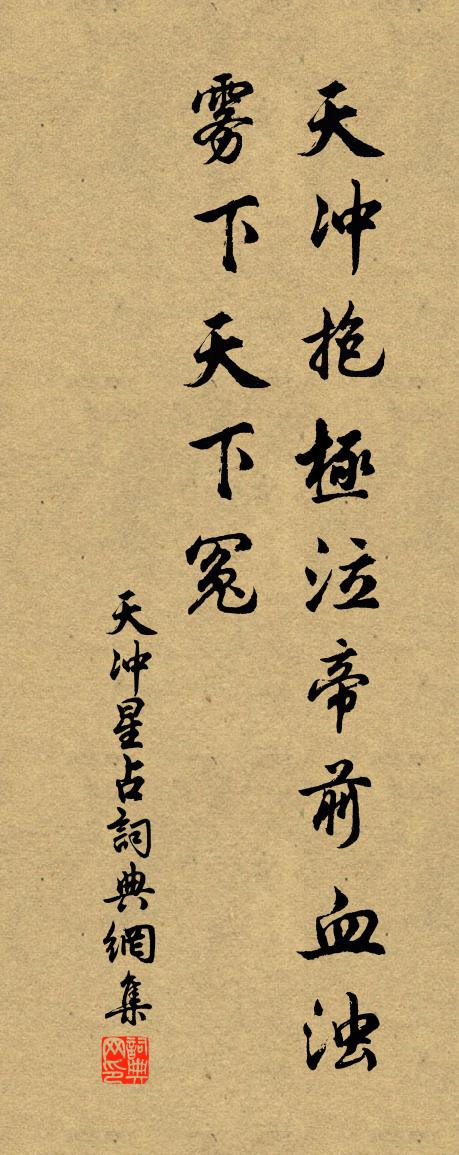 天冲抱極泣帝前血浊
雾下天下冤
天冲星占詞典網集
詞典网印